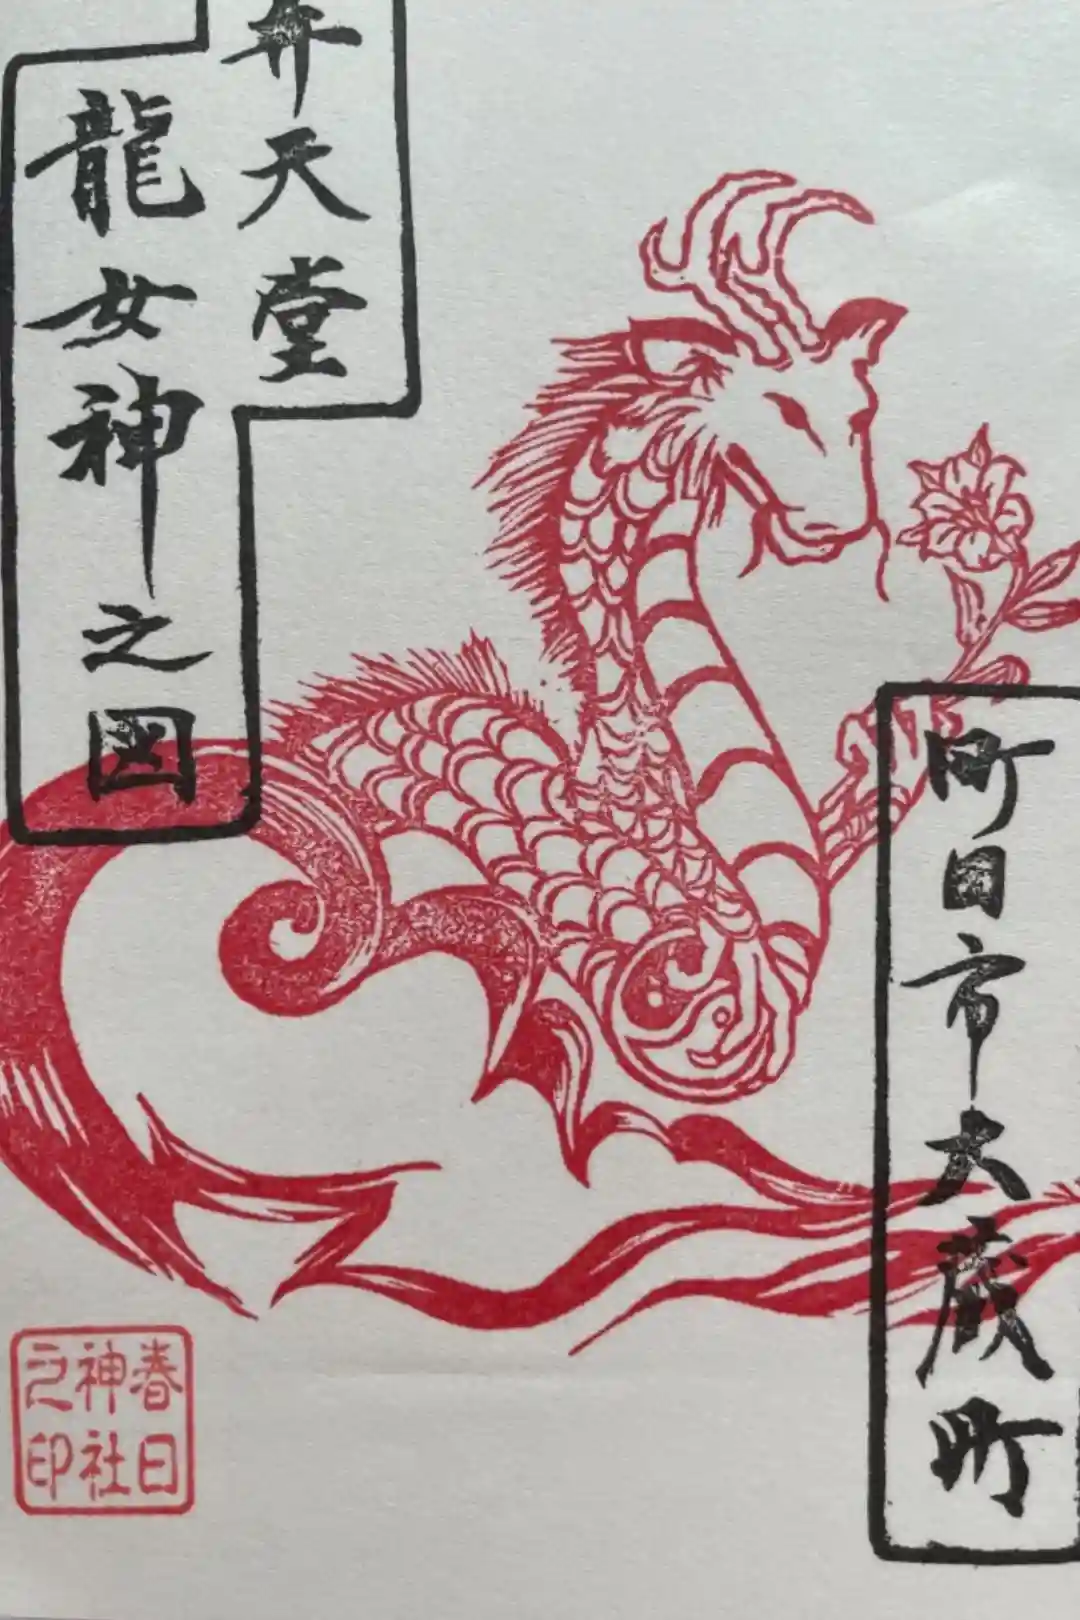 町田市大蔵町
弁天堂
龍女神之図
春日
神社
之印